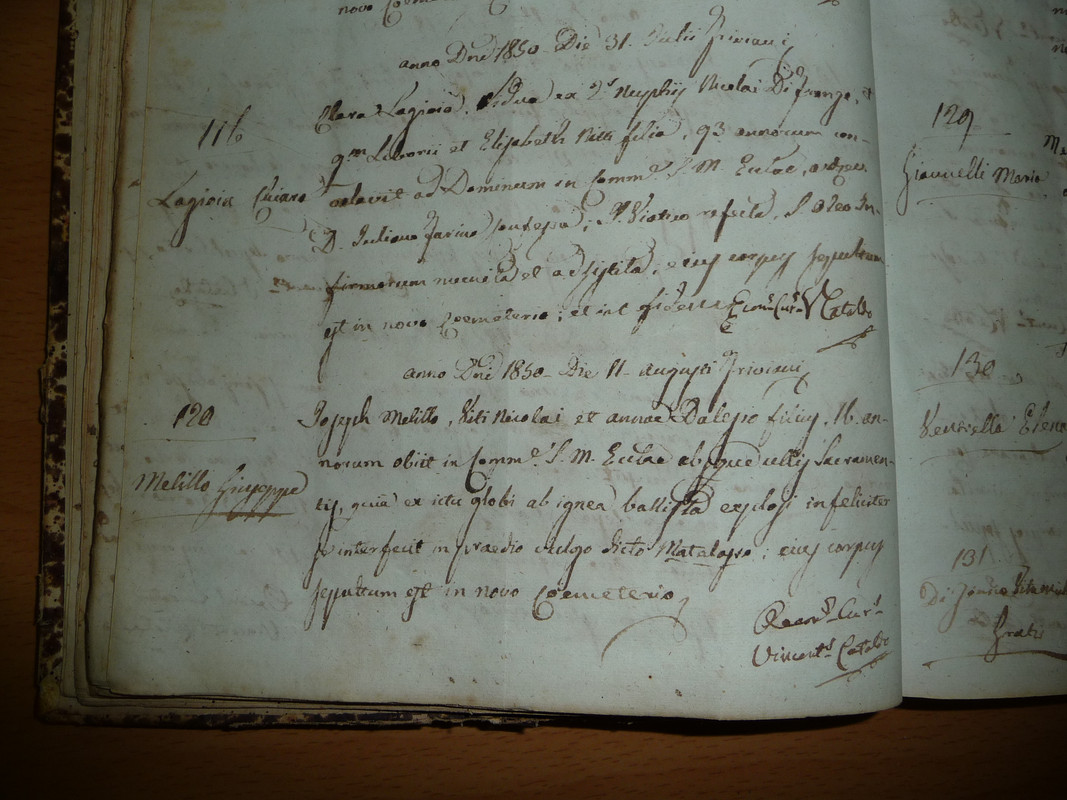 novo
anno Dni 1850 Die 31 Julii Triviani
116
Lagioia Chiara
Clara Lagioia, Vidua ex 2.s Nuptiis Nicolai Di Frange, et
qm Liborii et Elisabeth filia, 93 annorum con-
volavit ad Dominum in Comm.e S. M. Eccłae,
D. Juliano Farina confessa, S. Viatico refecta, S. Oleo In-
firmorum et adsistita, ejus corpus sepultum
est in novo Coemeterio; et in fidem Econ.s Cur.s V. Cataldo
anno Dni 1850 Die 11 augusti Triviani
120
Melillo Giuseppe
Joseph Melillo, Viti Nicolai et annae Dalesio filius, 16 an-
norum obiit in Comm.e S. M. Eccłae absque ullis Sacramen-
tis, quia ex ictu globi ab ignea ballista explosi infeliciter
se interfecit in praedio vulgo dicto Matalagro; ejus corpus
sepultum est in novo Coemeterio
Oecon.s Cur.s
Vincent.s Cataldo
129
Giannelli Maria
130
Ventrella Elena
131